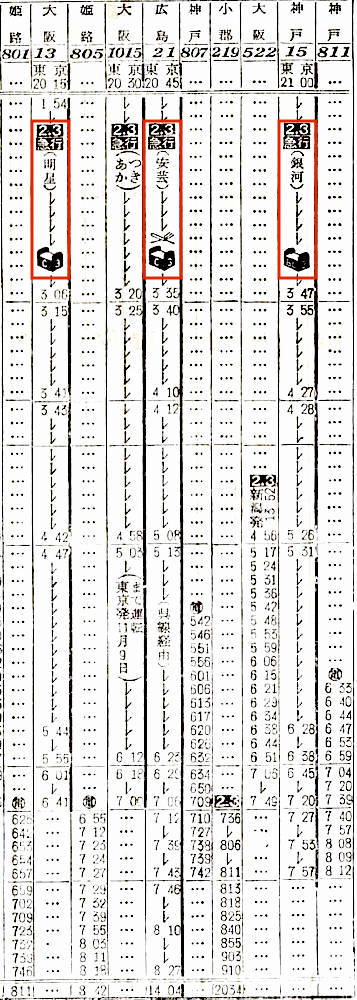 姫路 大阪 姫路 大阪 広島 神戸 小郡 大阪 神戸 神戸
801 13 805 1015 21 807 219 522 15 811
… 東京 … 東京 東京 … … … 東京 …
… 20 15 … 20 30 20 45 … … … 21 00 …
1 54
2.3 2.3 2.3 2.3
急行 急行 急行 急行
(明星) (あかつき) (安芸) (銀河)
3 06 … 3 20 3 35 … … … 3 47 …
3 15 … 3 25 3 40 … … … 3 55 …
3 41 … 4 10 … … … 4 27 …
3 43 … 4 12 … … … 4 28 …
2.3
新潟発 13 52
4 42 … 4 58 5 08 … … 4 56 5 26 …
4 47 … 5 03 5 13 … … 5 17 5 31 …
5 24
5 31
(東京発11月9日まで運転)
(呉線経由)
5 36
5 42
542 … 5 48
546 … 5 53
551 … 5 59
556 … 6 06
601 … 6 15
606 … 6 21 6 33
613 … 6 29 6 40
617 … 6 34 6 44
5 44 620 … 6 38 6 28 6 47
626 … 6 44 6 53
5 55 … 6 12 6 23 632 … 6 51 6 38 6 59
6 01 … 6 18 6 29 634 … 7 06 6 45 7 04
650 7 20
6 41 … 7 06 709 2.3 7 49 7 20 7 39
6 55 … 7 12 710 736 … 7 27 7 40
7 12 727 7 57
7 23 … 7 39 738 806 … 7 53 8 08
7 24 739 8 09
657 … 7 27 … 7 43 742 811 … 7 57 8 12
659 … 7 29 … 7 46 … 813
702 … 7 32 … 818
709 … 7 39 … 825
723 … 7 55 … 8 10 … 840
732 … 8 03 … 855
739 … 8 11 … 903
746 … 8 18 … 8 27 … 910
811 … 8 42 … 14 04 … 2034 …